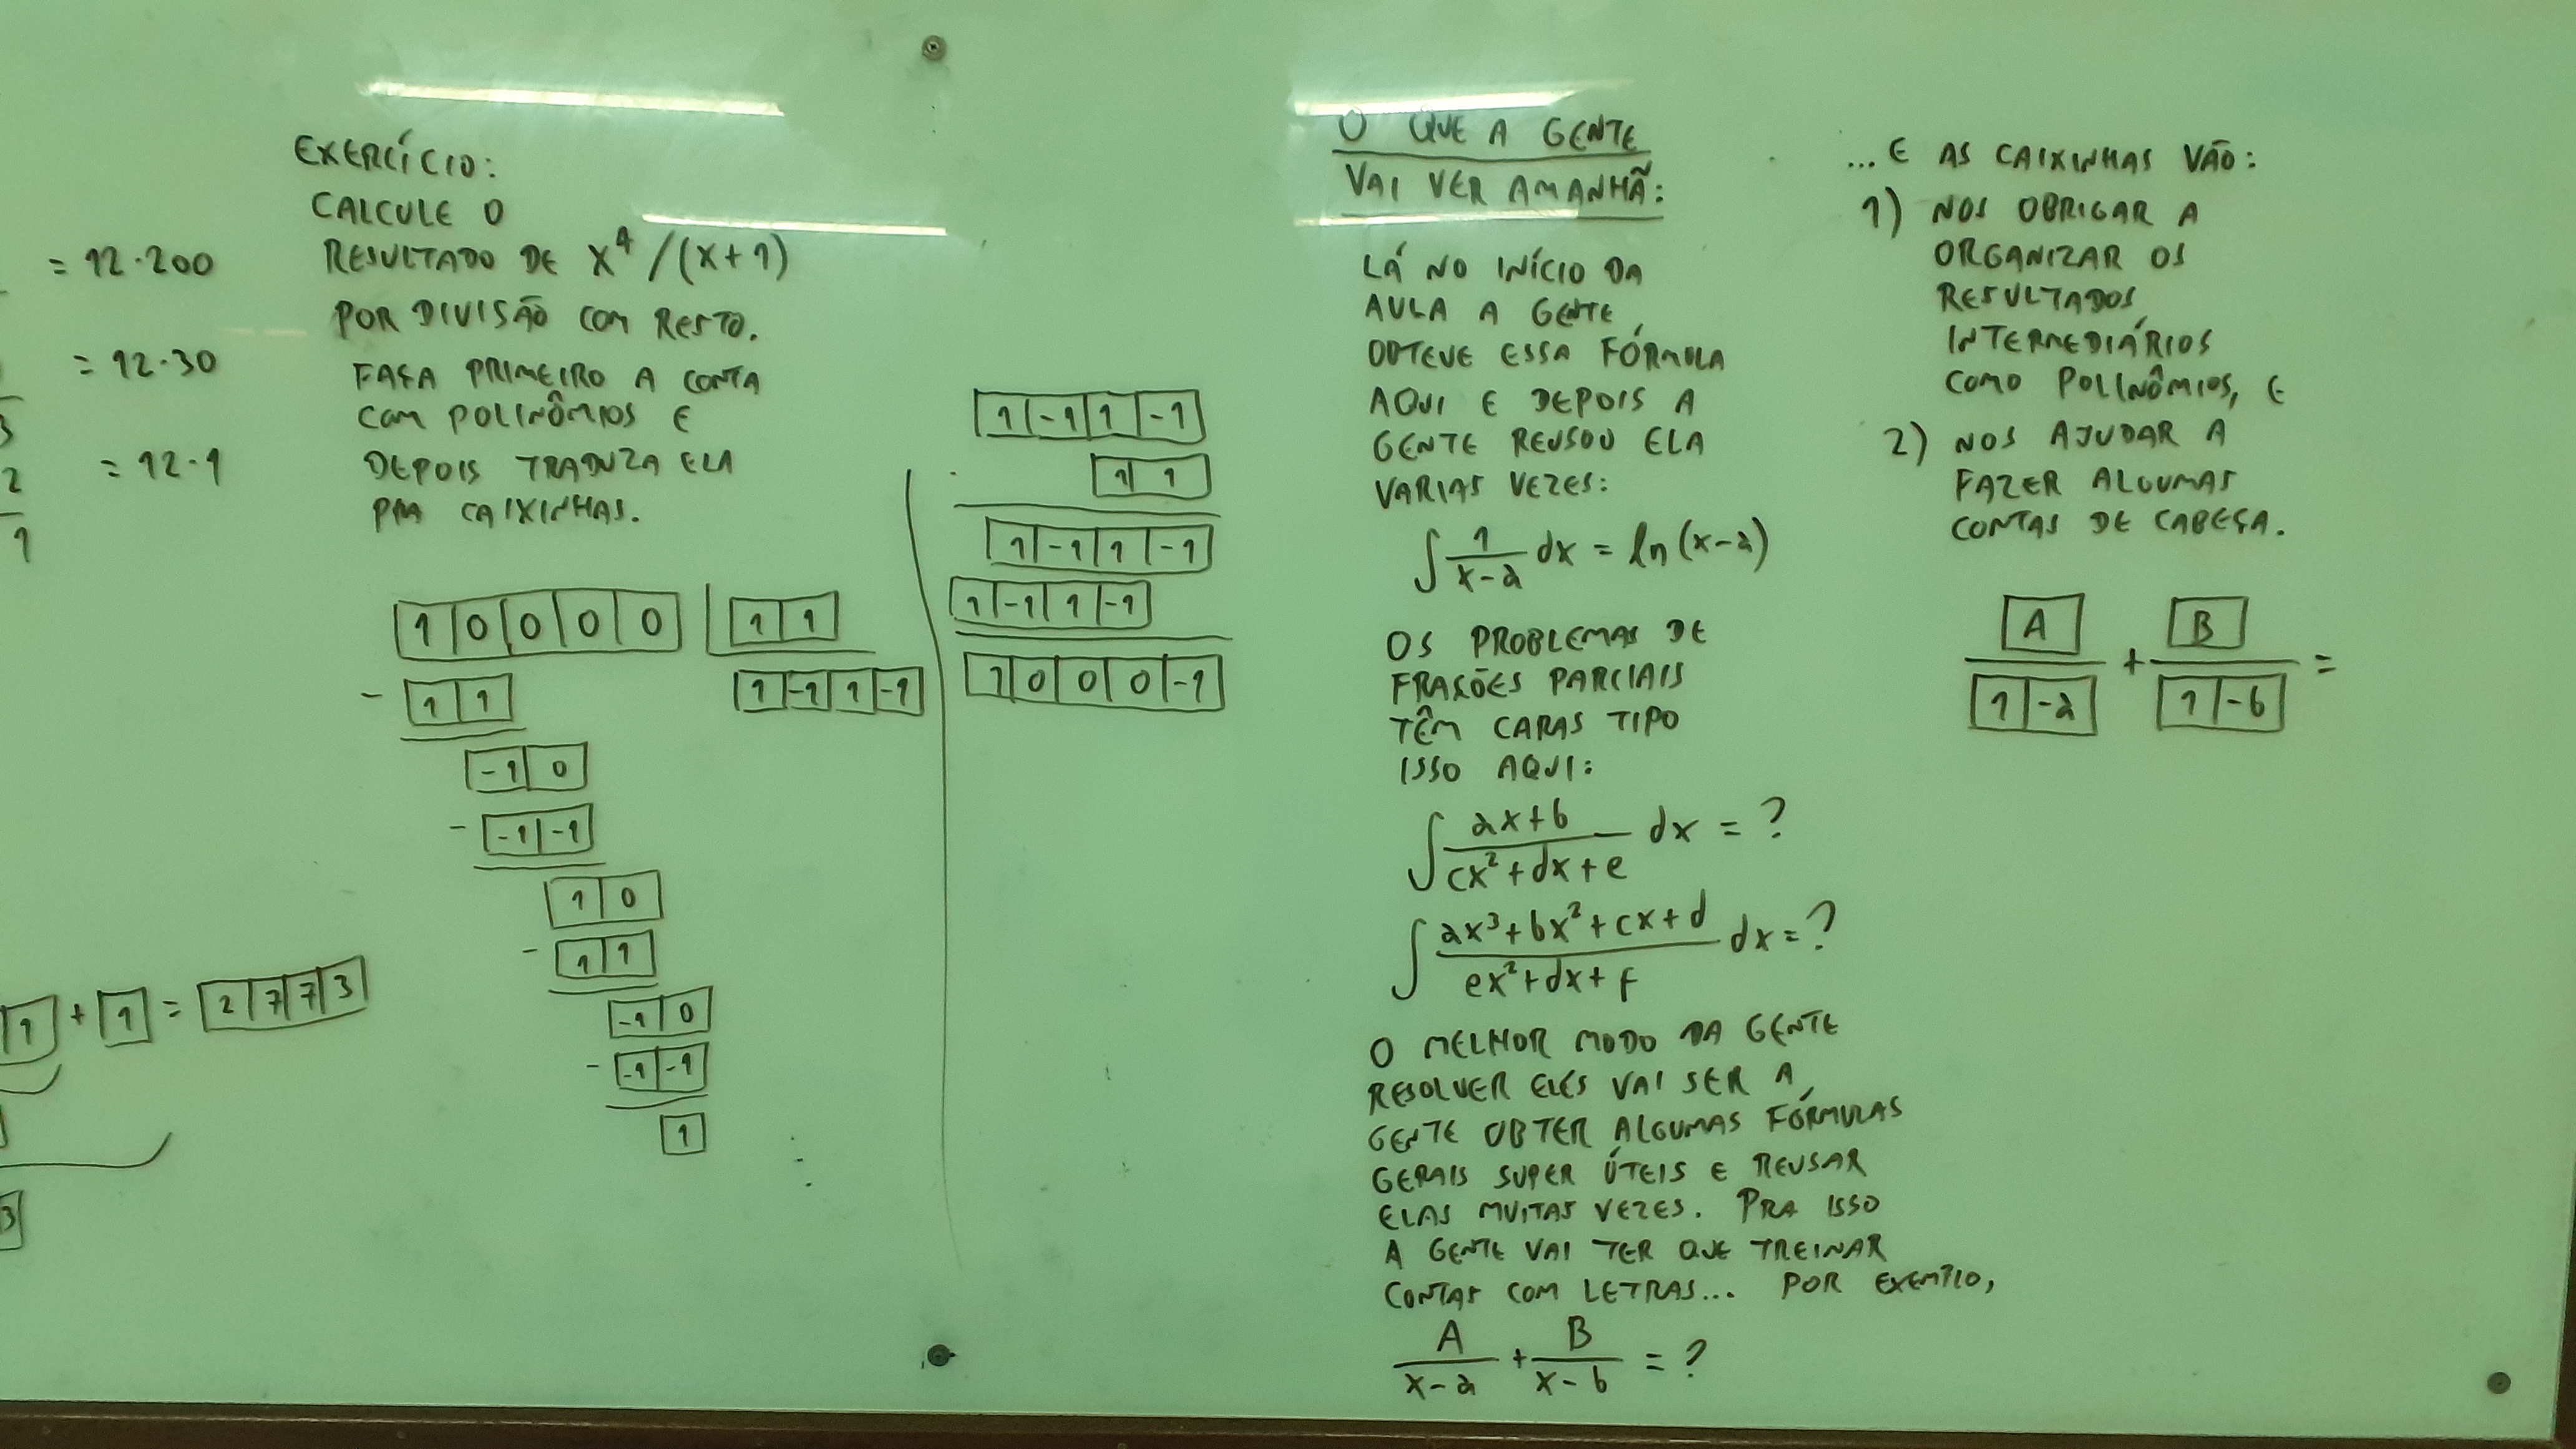 = 12·200
= 12·30
= 12·1
3
2
1
1 + 1 = 2 7 7 3
3
EXERCÍCIO:
CALCULE O
RESULTADO DE x⁴/(x+1)
POR DIVISÃO COM RESTO.
FAÇA PRIMEIRO A CONTA
COM POLINÔMIOS E
DEPOIS TRADUZA ELA
PRA CAIXINHAS.
1 0 0 0 0 | 1 1
- 1 1 1 -1 1 -1
-1 0
- -1 -1
1 0
- 1 1
-1 0
- -1 -1
1
1 -1 1 -1
· 1 1
1 -1 1 -1
1 -1 1 -1
1 0 0 0 -1
O QUE A GENTE
VAI VER AMANHÃ:
LÁ NO INÍCIO DA
AULA A GENTE
OBTEVE ESSA FÓRMULA
AQUI E DEPOIS A
GENTE REUSOU ELA
VARIAS VEZES:
∫ 1/(x-a) dx = ln(x-a)
OS PROBLEMAS DE
FRAÇÕES PARCIAIS
TÊM CARAS TIPO
ISSO AQUI:
∫ (ax+b)/(cx²+dx+e) dx = ?
∫ (ax³+bx²+cx+d)/(ex²+dx+f) dx = ?
O MELHOR MODO DA GENTE
RESOLVER ELES VAI SER A
GENTE OBTER ALGUMAS FÓRMULAS
GERAIS SUPER ÚTEIS E REUSAR
ELAS MUITAS VEZES. PRA ISSO
A GENTE VAI TER QUE TREINAR
CONTAS COM LETRAS... POR EXEMPLO,
A/(x-a) + B/(x-b) = ?
...E AS CAIXINHAS VÃO:
1) NOS OBRIGAR A
ORGANIZAR OS
RESULTADOS
INTERMEDIÁRIOS
COMO POLINÔMIOS, E
2) NOS AJUDAR A
FAZER ALGUMAS
CONTAS DE CABEÇA.
A + B =
1 -a 1 -b